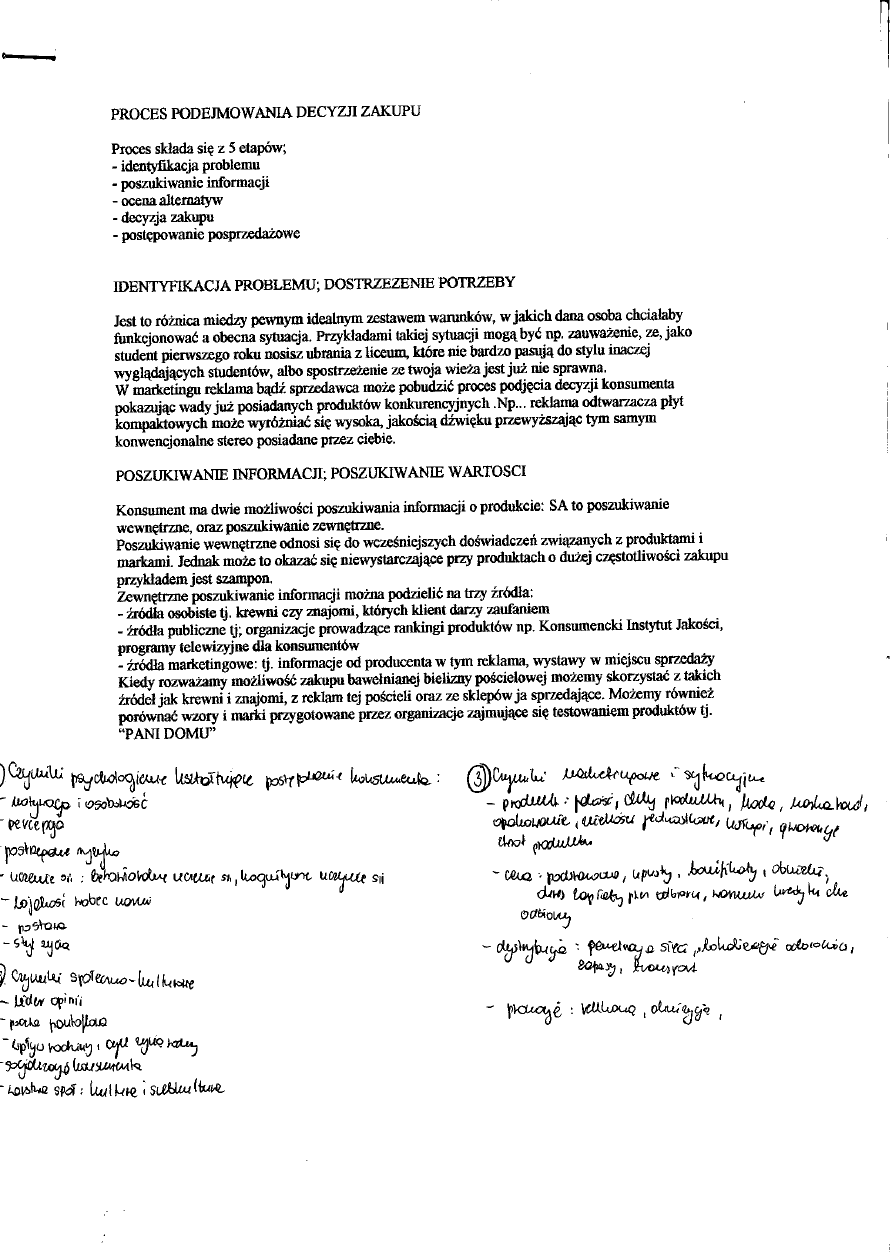 PROCES PODEJMOWANIA DECYZJI ZAKUPU
Proces składa się z 5 etapów;
- identyfikacja problemu
- poszukiwanie informacji
- ocena alternatyw
- decyzja zakupu
- postępowanie posprzedażowe
IDENTYFIKACJA PROBLEMU; DOSTRZEZENIE POTRZEBY
Jest to różnica miedzy pewnym idealnym zestawem warunków, w jakich dana osoba chciałaby
funkcjonować a obecna sytuacja. Przykładami takiej sytuacji mogą być np. zauważenie, ze, jako
student pierwszego roku nosisz ubrania z liceum, które nie bardzo pasują do stylu inaczej
wyglądających studentów, albo spostrzeżenie ze twoja wieża jest już nie sprawna.
W marketingu reklama bądź sprzedawca może pobudzić proces podjęcia decyzji konsumenta
pokazując wady już posiadanych produktów konkurencyjnych .Np... reklama odtwarzacza płyt
kompaktowych może wyróżniać się wysoka, jakością dźwięku przewyższając tym samym
konwencjonalne stereo posiadane przez ciebie.
POSZUKIWANIE INFORMACJI; POSZUKIWANIE WARTOSCI
Konsument ma dwie możliwości poszukiwania informacji o produkcie: SA to poszukiwanie
wewnętrzne, oraz poszukiwanie zewnętrzne.
Poszukiwanie wewnętrzne odnosi się do wcześniejszych doświadczeń związanych z produktami i
markami. Jednak może to okazać się niewystarczające przy produktach o dużej częstotliwości zakupu
przykładem jest szampon.
Zewnętrzne poszukiwanie informacji można podzielić na trzy źródła:
- źródła osobiste tj. krewni czy znajomi, których klient darzy zaufaniem
- źródła publiczne tj; organizacje prowadzące rankingi produktów np. Konsumencki Instytut Jakości,
programy telewizyjne dla konsumentów
- źródła marketingowe: tj. informacje od producenta w tym reklama, wystawy w miejscu sprzedaży
Kiedy rozważamy możliwość zakupu bawełnianej bielizny pościelowej możemy skorzystać z takich
źródeł jak krewni i znajomi, z reklam tej pościeli oraz ze sklepów ja sprzedające. Możemy również
porównać wzory i marki przygotowane przez organizacje zajmujące się testowaniem produktów tj.
“PANI DOMU”
) Czynniki psychologiczne kształtujące postępowanie konsumenta :
- motywacja i osobowość
- percepcja
postrzegane ryzyko
- uczenie się : behawioralne uczenie się, kognitywne uczenie się
- Lojalność wobec marki
- postawa
- styl życia
) Czynniki społeczno-kulturowe
- lider opinii
- poczta pantoflowa
- wpływ rodziny, cykl życia rodziny
- socjalizacja konsumenta
- warstwa społ : kultura i subkultura
3) Czynniki marketingowe i sytuacyjne
- produktu : jakość, cechy produktu, moda, marka
opakowanie, gwarancje
zwrot produktu
- cena : upusty, bonifikaty
odbiorcy
- dystrybucja : sieci
zapasy, transport
- promocja : reklama